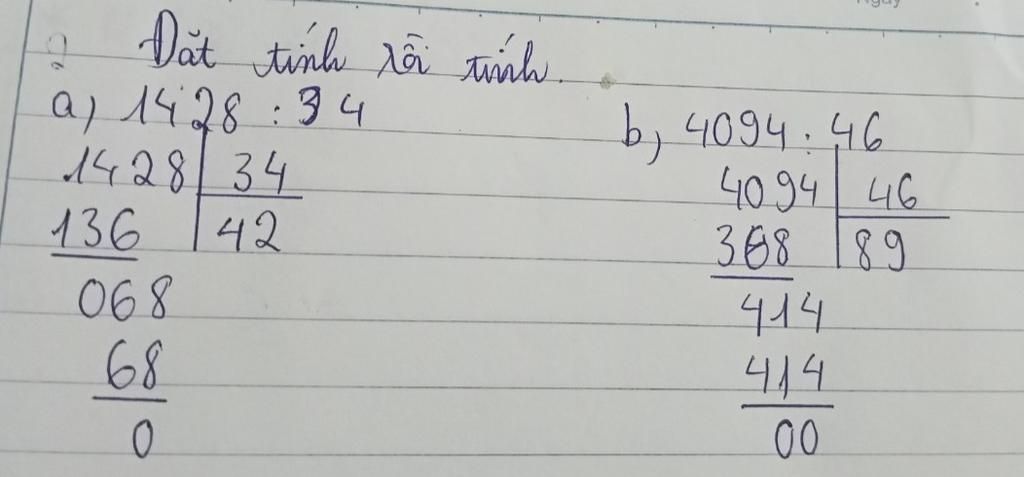 2 Đặt tính rồi tính.
a) 1428 : 34
1428 34
136 42
068
68
0
b) 4094 : 46
4094 46
368 89
414
414
00